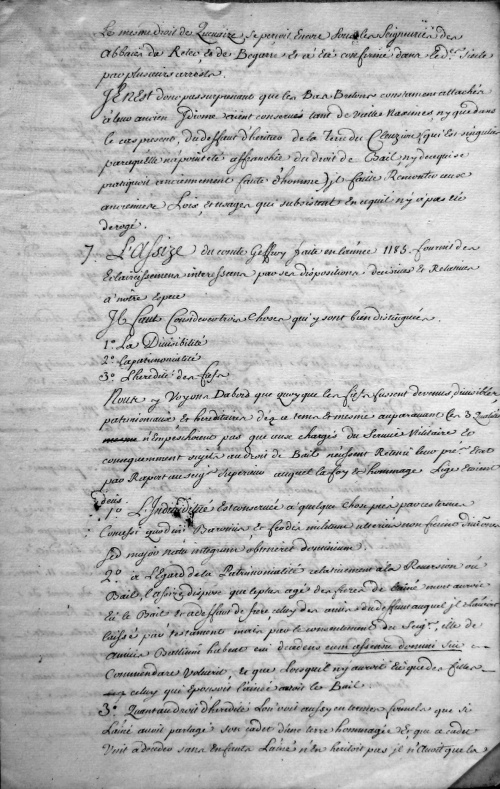 Le mesme droit de Quevaize se percoit Encore sous les Seigneuries des
Abbaies du Relecq et de Begard Et a été confirmé dans le d.er Siecle
par plusieurs arrests.
Il n'Est donc pas surprenant que les Bas Bretons constament attachés
a leur ancien Idiome aient conservés tant de vielles Maximes, ny que dans
le cas present, du deffaut d'heritier de la Terre du Cleuziou (qui les singular
par ce qu'elle n'a point eté affranchie du droit de Bail, ny de ce qui se
pratiquoit anciennement faute d'homme) il faille Remonter aux
anciennes Loix, et usages qui subsistent En ce qu'il n'y a pas eté
derogé.
7. L'Assize du comte Geffroy faite en l'année 1185. fournit des
Eclaircissemens interessans par ses dispositions decisives et Relatives
a notre Espece
Il faut Considerer trois Choses qui y sont bien distinguées.
1.o La Divisibilité
2.o La patrimonialité
3.o L'heredité des fiefs
Nous y Voyons Dabord que quoy que les fiefs fussent devenus divisibles,
patrimoniaux et hereditaires dez ce tems et mesme auparavant Ces 3 Qualités
n'Empeschoient pas que aux charges du Service Militaire et
consequemment sujets au droit de Bail n'eussent Retenu leur pr. Etat
par Raport au seig.r Superieur auquel la foy et hommage Lige étoient
deüs.
1.o L'Indivisibilité Est conservée a quelque chose près par ces termes
Concessi quod in Baroniis et feodis militum ulterius non fierent divisiones
Sed major natu integrum obtineret dominium.
2.o a L'Egard de la Patrimonialité relativement a la Reversion ou
Bail, l'assize dispose que le plus agé des freres de l'ainé mort auroit
Eü le Bail Et a deffaut de frere celuy des amis du deffunt auquel il l'auroit
laissé par testament mais par le consentement du Seig.r, ille de
amicis Balliam habeat cui decedens cum assensu domini sui
Commendare Voluerit, et que lorsqu'il n'y auroit Eü que des filles
celuy qui épousoit l'ainée auroit le Bail.
3.o Quant au droit d'heredité L'on voit aussy en termes formels que si
L'ainé avoit partagé son cadet d'une terre hommagée Et que ce cadet
Vint a deceder sans Enfants L'ainé n'En heritoit pas il n'avoit que la